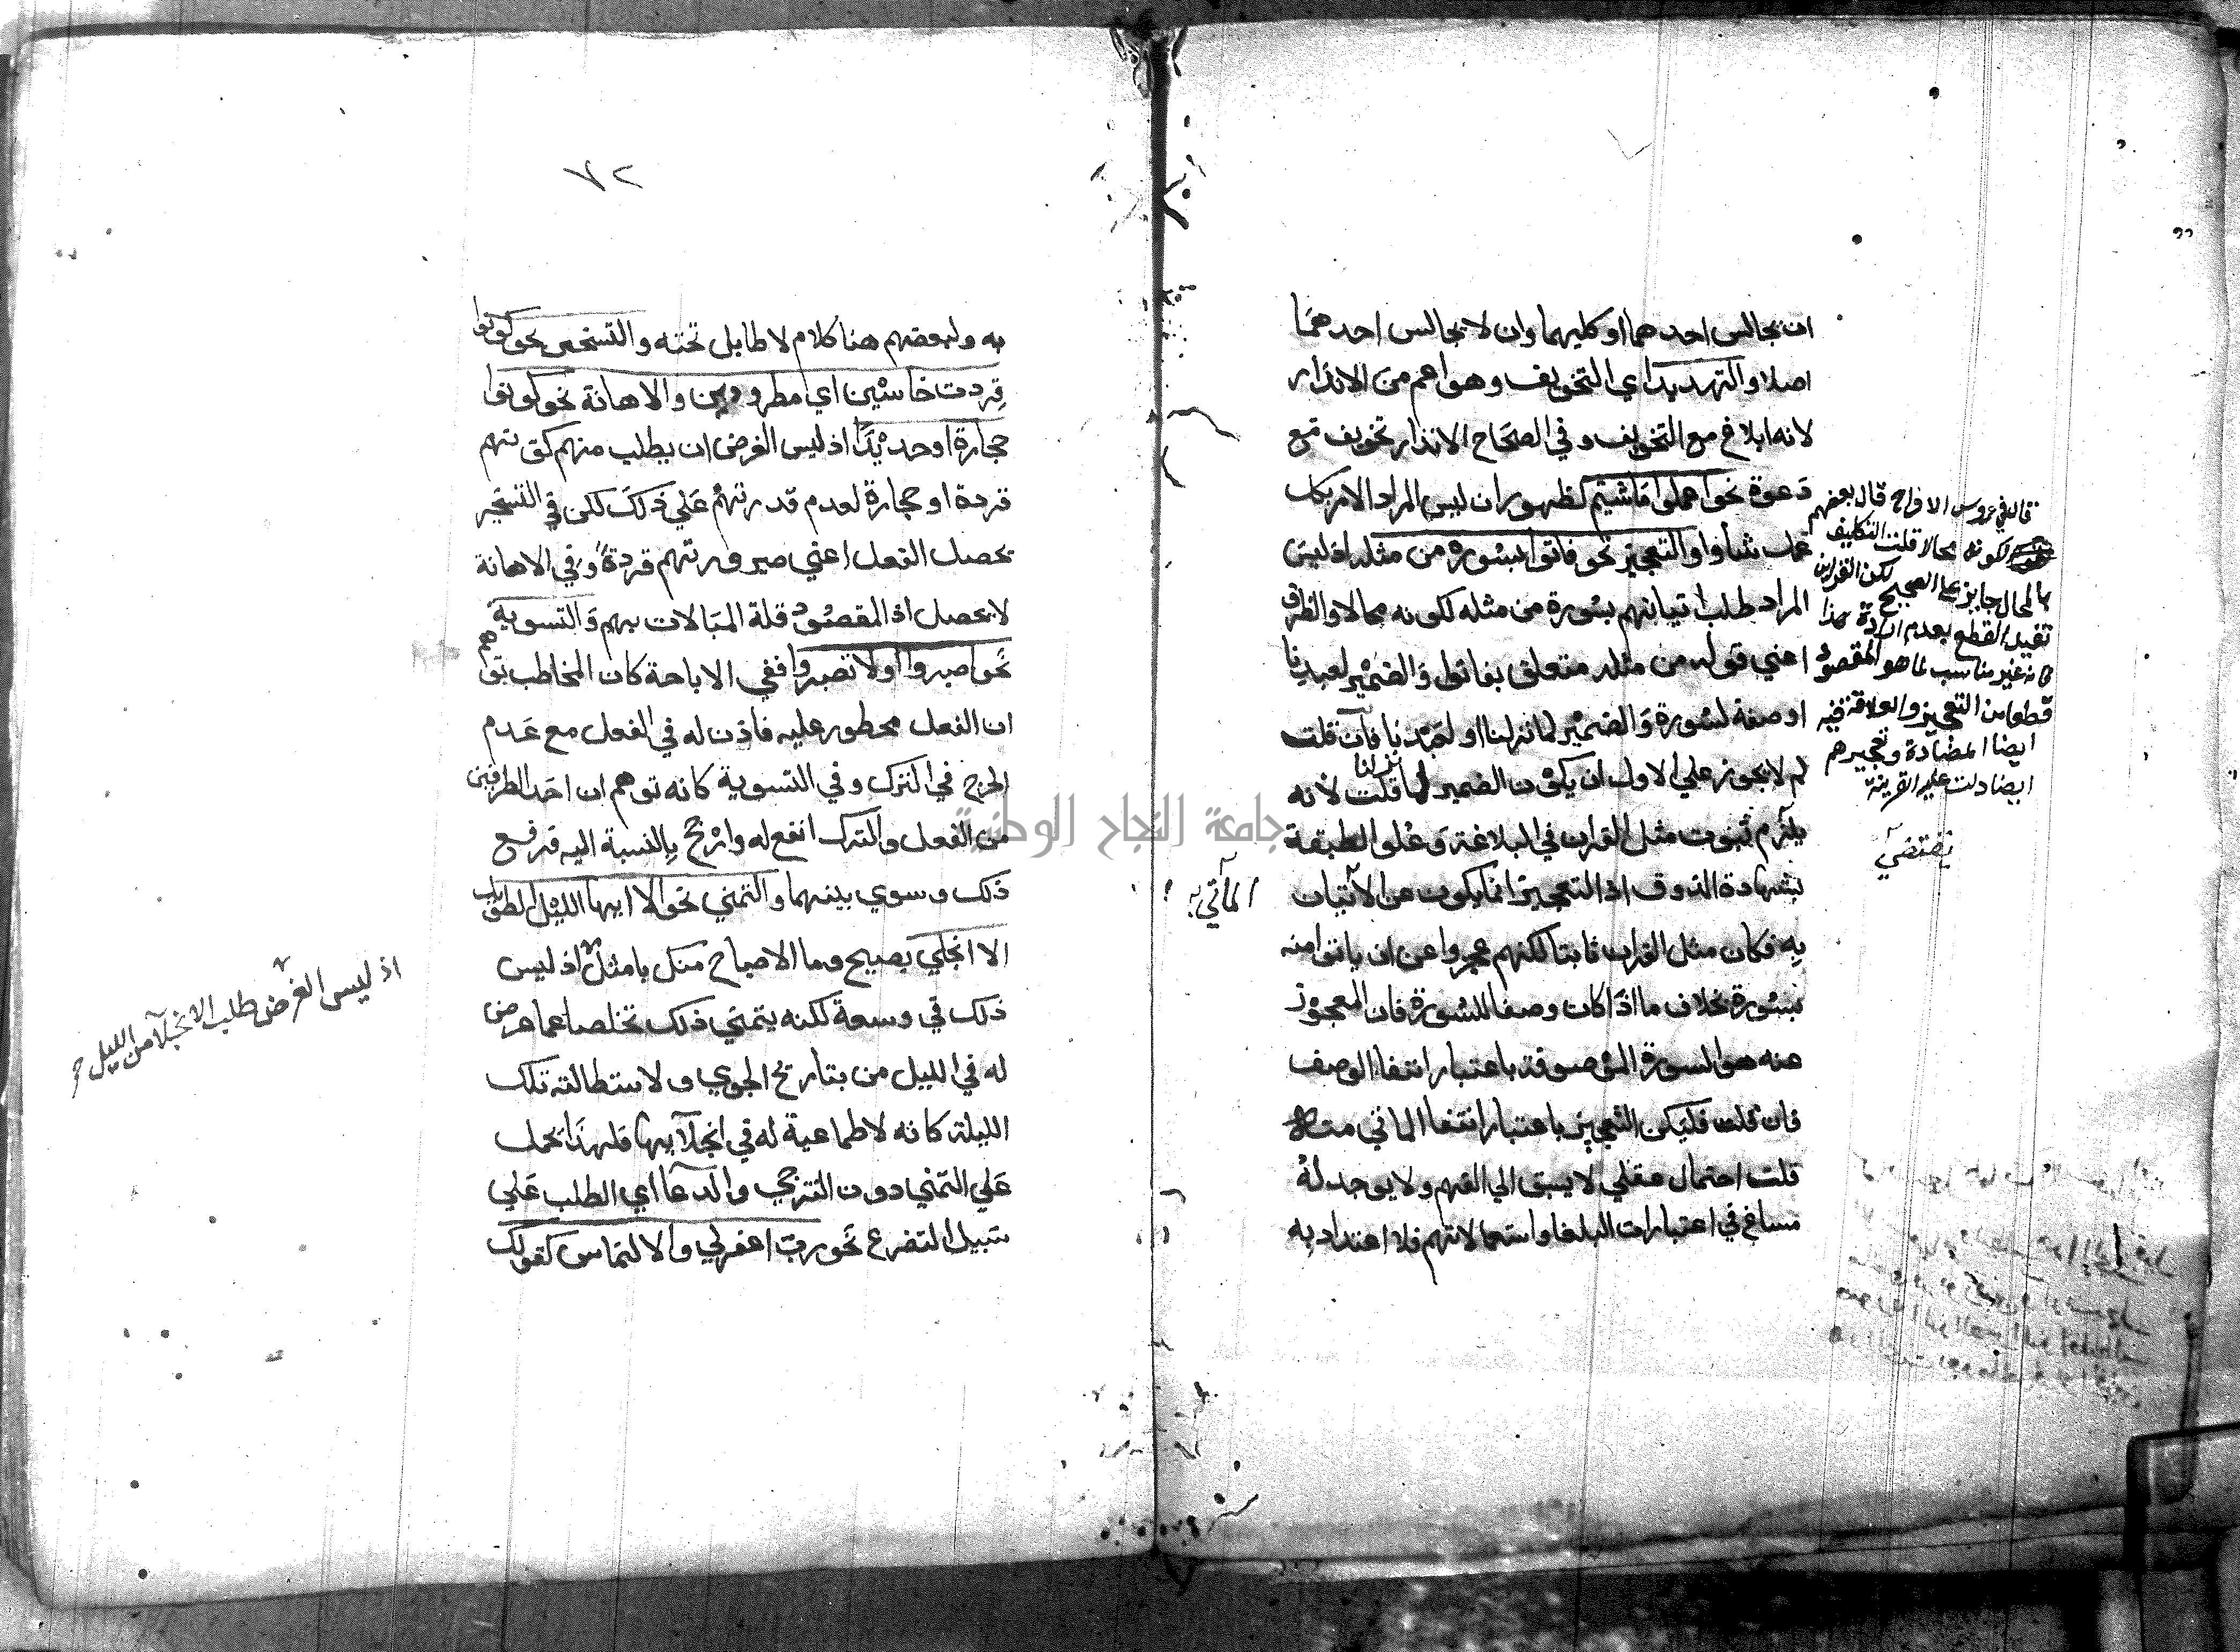 ان يجالس احدهما او كليهما وان لا يجالس احدهما
اصلا والتهديد اي التخويف وهو اعم من الانذار
لانه ابلاغ مع التخويف وفي الصحاح الانذار تخويف مع
دعوة نحو اعملوا ما شيتم لظهور ان ليس المراد الامر بكل
عمل شاؤا والتعجيز نحو فاتوا بسورة من مثله اذ ليس
المراد طلب اتيانهم بسورة من مثله لكونه محالا والظرف
اعني قوله من مثله متعلق بفاتوا والضمير لعبدنا
او صفة لسورة والضمير لما نزلنا او لعبدنا فان قلت
لم لا يجوز علي الاول ان يكون الضمير لما نزلنا قلت لانه
يلزم ثبوت مثل القران في البلاغة وعلو الطبقة
بشهادة الذوق اذ التعجيز انما يكون عن الاتيان
به فكان مثل القران ثابتا لكنهم عجزوا عن ان ياتوا منه
بسورة بخلاف ما اذا كان وصفا للسورة فان المعجوز
عنه هو السورة الموصوفة باعتبار انتفا الوصف
فان قلت فليكن التعجيز باعتبار انتفا الماتي منه
قلت احتمال عقلي لا يسبق الي الفهم ولا يوجد له
مساغ في اعتبارات البلغا واستعمالاتهم فلا اعتداد به
قال في عروس الافراح قال بعضهم
لكونه محالا قلت التكليف
بالمحال جايز علي الصحيح لكن القراين
تفيد القطع بعدم ارادة هذا
لانه غير مناسب لما هو المقصود
قطعا من التعجيز والعلاقة فيه
ايضا المضادة وتعجيزهم
ايضا دلت عليه القرينة
يقتضي
الماتي به
٧٢
به ولبعضهم هنا كلام لا طايل تحته والتسخير نحو كونوا
قردة خاسئين اي مطرودين والاهانة نحو كونوا
حجارة او حديدًا اذ ليس الغرض ان يطلب منهم كونهم
قردة او حجارة لعدم قدرتهم علي ذلك لكن في التسخير
يحصل الفعل اعني صيرورتهم قردة وفي الاهانة
لا يحصل اذ المقصود قلة المبالات بهم والتسوية
نحو اصبروا او لا تصبروا ففي الاباحة كان المخاطب توهم
ان الفعل محظور عليه فاذن له في الفعل مع عدم
الحرج في الترك وفي التسوية كانه توهم ان احد الطرفين
من الفعل والترك انفع له وارجح بالنسبة اليه فرفع
ذلك وسوي بينهما والتمني نحو الا ايها الليل الطويل
الا انجلي بصبح وما الاصباح منك بامثل اذ ليس
ذلك في وسعه لكنه يتمني ذلك تخلصا عما عرض
له في الليل من تباريح الجوي ولاستطالته تلك
الليلة كانه لا طماعية له في انجلايها فلهذا يحمل
علي التمني دون الترجي والدعا اي الطلب علي
سبيل التضرع نحو رب اغفر لي والالتماس كقولك
اذ ليس الغرض طلب الانجلا من الليل